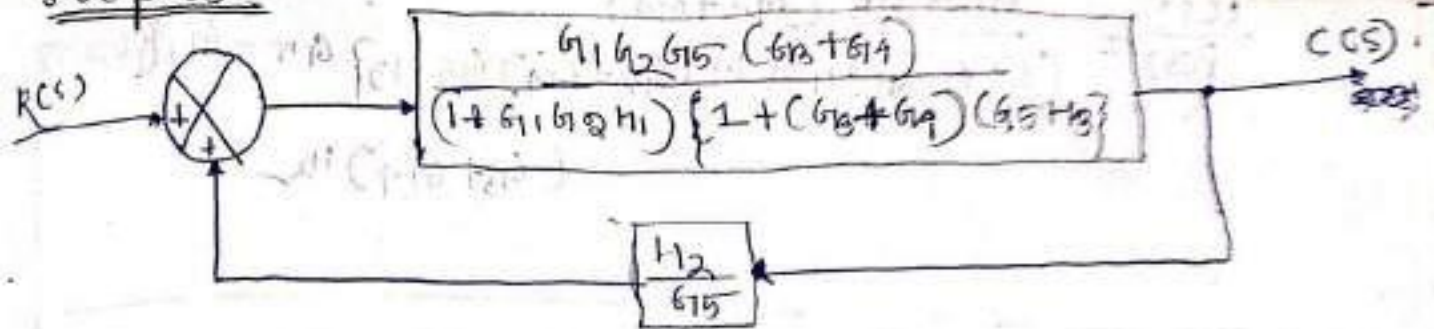 R(s)
+
+
G1 G2 G5 (G3+G4)
(1+ G1 G2 H1) {1+(G3+G4)(G5 H3}
C(S)
H2
G5